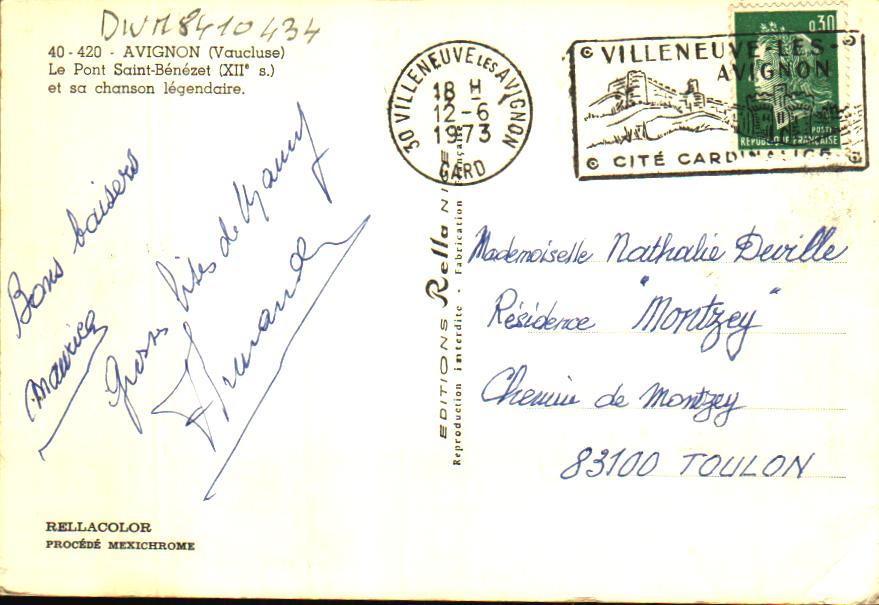 DWM8410434
40-420 - AVIGNON (Vaucluse)
Le Pont Saint-Bénézet (XIIᵉ s.)
et sa chanson légendaire.
Bons baisers
Maurice
Grosses bises de
Armande
RELLACOLOR
PROCÉDÉ MEXICHROME
EDITIONS Rella NICE
Reproduction interdite - Fabrication Française
30 VILLENEUVE LES AVIGNON
18 H
12-6
1973
GARD
VILLENEUVE-LES-
AVIGNON
CITÉ CARDINALICE
0,30
POSTES
REPUBLIQUE FRANÇAISE
Mademoiselle Nathalie Deville
Résidence "Montzey"
Chemin de Montzey
83100 TOULON